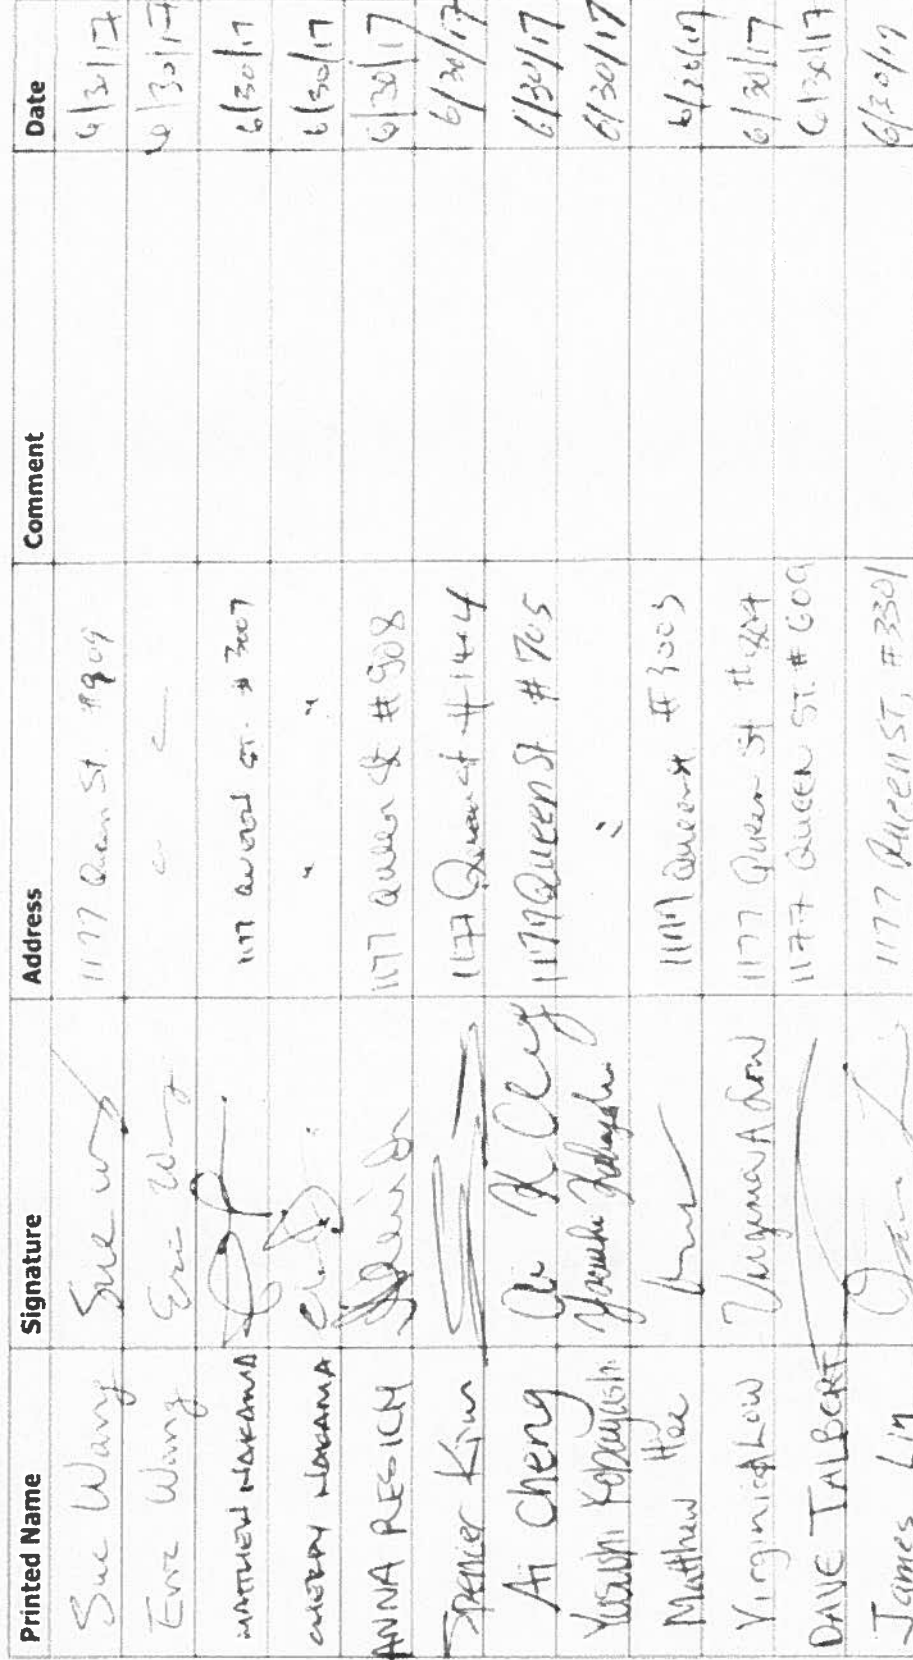 Printed Name Signature Address Comment Date
Sue Wang Sue W 1177 Queen St #909 6/30/17
Eric Wang Eric W 6/30/17
MATTHEW NAKAMA 1177 QUEEN ST. #3007 6/30/17
NAKAMA " " 6/30/17
ANNA RESICH 1177 Queen St #908 6/30/17
Spencer Kim 1177 Queen St #1444 6/30/17
Ai Cheng Ai K Cheng 1177 Queen St #705 6/30/17
Yasushi Kobayashi Yasushi Kobayashi " 6/30/17
Matthew 1177 Queen St #3003 6/30/17
Virginia Low Virginia A Low 1177 Queen St 6/30/17
DAVE TALBERT 1177 QUEEN ST. #609 6/30/17
James Lin 1177 Queen ST, #3301 6/30/17